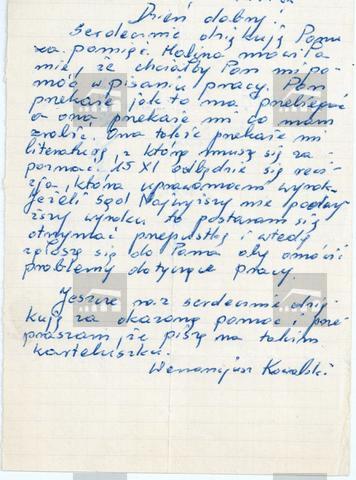 Dzień dobry!
Serdecznie dziękuję Panu
za pamięć. Halina mówiła
mi, że chciałby Pan mi po
móc w pisaniu pracy. Pan
przekaże jak to ma przebiegać
a ona przekaże mi co mam
zrobić. Ona także przekaże mi
literaturę, z którą muszę się za
poznać. 15 XI odbędzie się rewi
zja, która uprawomocni wyrok.
Jeżeli Sąd Najwyższy nie podwy
ższy wyroku to postaram się
otrzymać przepustkę i wtedy
zgłoszę się do Pana aby omówić
problemy dotyczące pracy.
Jeszcze raz serdecznie dzię
kuję za okazaną pomoc i prze
praszam, że piszę na takim
karteluszku.
Wenancjusz Kowalski